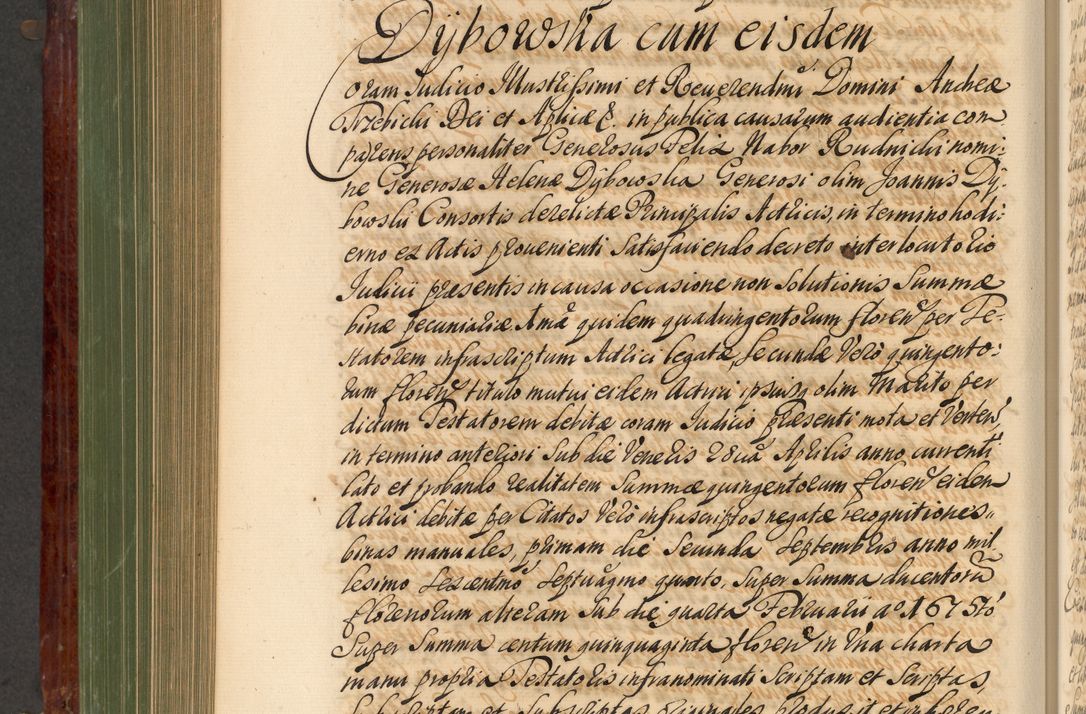 Dÿbowska cum eisdem
Coram Judicio Illustrissimi et Reuerendmi Domini Andreæ
Trzebicki Dei et Aplicæ &. in publica causarum audientia com
parens personaliter Generosus Felix Nabor Rudnicki nomi:
ne Generosæ Helenæ Dÿbowska Generosi olim Joannis Dÿ:
bowski Consortis derelictæ Principalis Actricis, in termino hodi:
erno ex Actis prouenienti Satisfaciendo decreto interlocutorio
Judicii præsentis in causa occasione non Solutionis Summæ
binæ pecuniariæ Amæ quidem quadringentorum floren: per Te:
statorem infrascriptum Actrici legatæ, secundæ Verò quingento:
rum floren: titulo mutui eidem Actrici ipsiusq olim Marito per
dictam Testatorem debitæ coram Judicio Præsenti mota et Verten,
in termino anteriori Sub die Veneris 28cia Aprilis anno currenti
lato et probando realitatem Summæ quingentorum floren: eidem
Actrici debitæ per Citatos Verò infrascriptos negatæ recognitiones
binas manuales, primam die Secunda Septembris anno mil
lesimo Sexcentmo Septuagmo quinto, Super Summa ducentorũ
florenorum alteram Sub die quarta Februarii ao 1675to
Super Summa centum quinquaginta floren: in Vna charta
manu propria Testatoris infranominati Scriptam et Scriptas,
Subscriptam et Subscriptas Originales Produxit et in